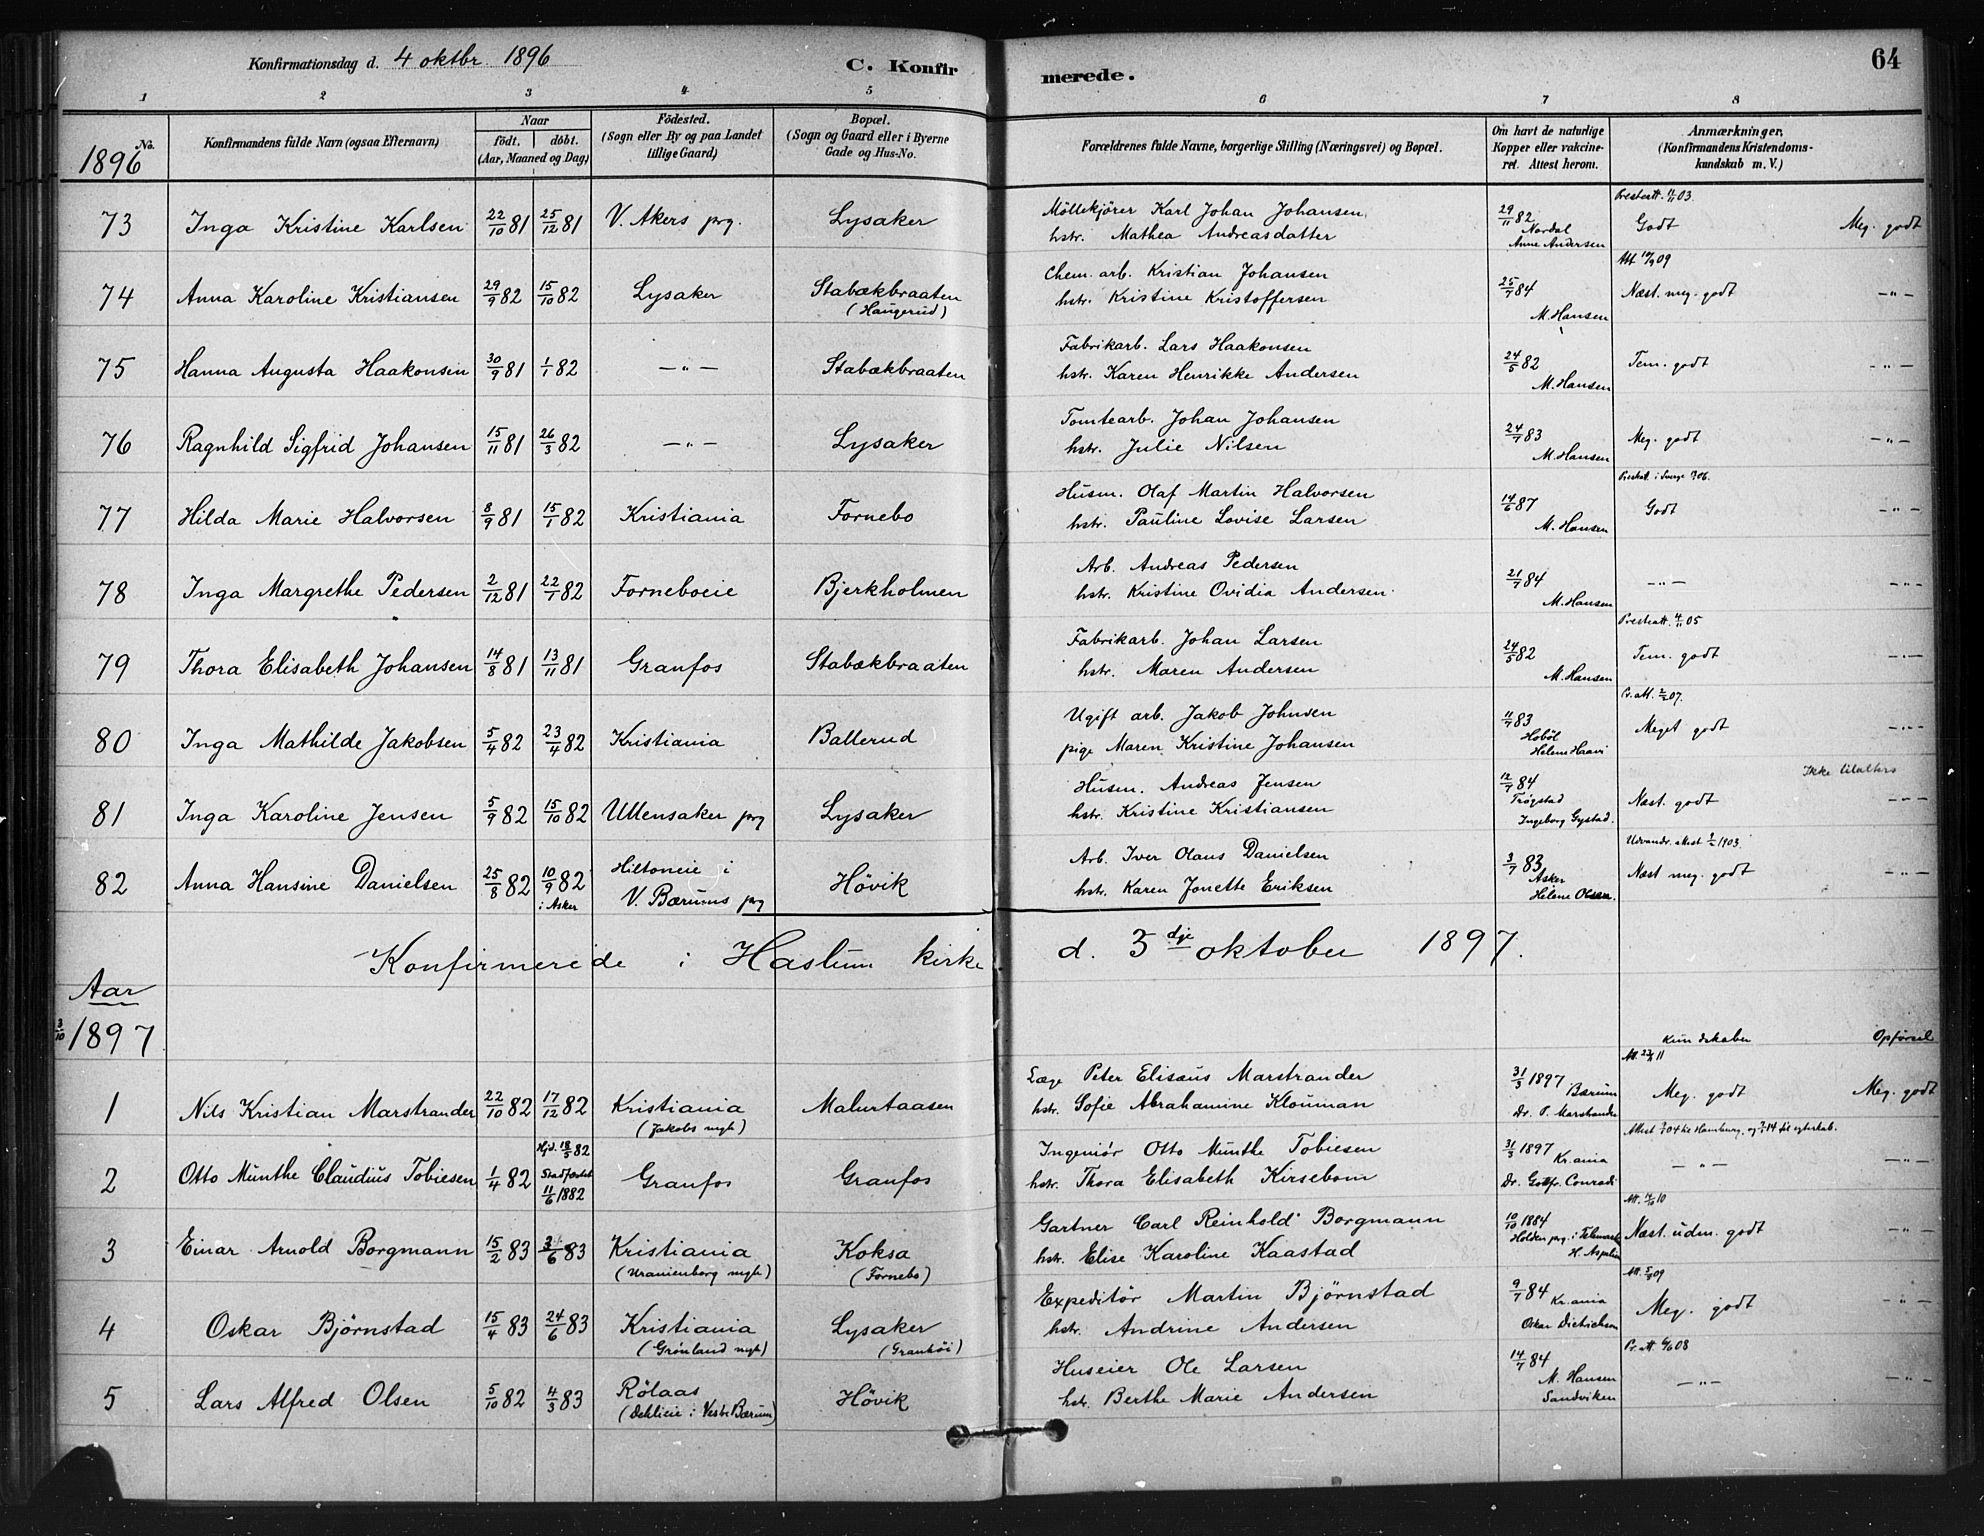 Konfirmationsdag d. 4 oktbr. 1896
C. Konfirmerede.
64
1 2 3 4 5 6 7 8
No.
1896
Konfirmandens fulde Navn (ogsaa Efternavn)
Naar
födt. döbt.
(Aar, Maaned og Dag)
Födested.
(Sogn eller By og paa Landet
tillige Gaard)
Bopæl.
(Sogn og Gaard eller i Byerne
Gade og Hus-No.
Forældrenes fulde Navne, borgerlige Stilling (Næringsvei) og Bopæl.
Om havt de naturlige
Kopper eller vakcine-
ret. Attest herom.
Anmærkninger,
(Konfirmandens Kristendoms-
kundskab m. V.)
Presteatt. 11/11 03.
73 Inga Kristine Karlsen 22/10 81 25/12 81 V. Akers prg. Lysaker Möllekjörer Karl Johan Johansen 29/11 82 Godt Meg. godt
hstr. Mathea Andreasdatter Nordal
Anne Andersen
74 Anna Karoline Kristiansen 29/9 82 15/10 82 Lysaker Stabækbraaten Chem. arb. Kristian Johansen 25/7 84 Næst. meg. godt —"—
(Haugerud) hstr. Kristine Kristoffersen M. Hansen
75 Hanna Augusta Haakonsen 30/9 81 1/1 82 —"— Stabækbraaten Fabrikarb. Lars Haakonsen 24/5 82 Tem. godt —"—
hstr. Karen Henrikke Andersen M. Hansen
76 Ragnhild Sigfrid Johansen 15/11 81 26/3 82 —"— Lysaker Tomtearb. Johan Johansen 24/7 83 Meg. godt —"—
hstr. Julie Nilsen M. Hansen
77 Hilda Marie Halvorsen 8/9 81 15/1 82 Kristiania Fornebo Husm. Olaf Martin Halvorsen 14/6 87 Godt —"—
hstr. Pauline Lovise Larsen M. Hansen
78 Inga Margrethe Pedersen 2/12 81 22/1 82 Forneboeie Bjerkholmen Arb. Andreas Pedersen 21/7 84 —"— —"—
hstr. Kristine Ovidia Andersen M. Hansen
Presteatt. 4/11 05
79 Thora Elisabeth Johansen 14/8 81 13/11 81 Granfos Stabækbraaten Fabrikarb. Johan Larsen 24/5 82 Tem. godt —"—
hstr. Maren Andersen M. Hansen
80 Inga Mathilde Jakobsen 5/4 82 23/4 82 Kristiania Ballerud Ugift arb. Jakob Johnsen 11/7 83 Meget godt —"—
pige Maren Kristine Johansen Hobøl
Helene Haavi
81 Inga Karoline Jensen 5/9 82 15/10 82 Ullensaker prg Lysaker Husm. Andreas Jensen 12/7 84 Næst. godt —"—
hstr. Kristine Kristiansen Trøgstad
Ingeborg Gystad.
82 Anna Hansine Danielsen 25/8 82 10/9 82 i Asker Hiltoneie i V. Bærums prg Hövik Arb. Iver Olaus Danielsen 3/7 83 Næst meg. godt —"—
hstr. Karen Jonette Eriksen Asker
Helene Olsen.
Konfirmerede i Haslum kirke d. 3dje oktober 1897.
Aar
3/10 1897
Kundskaber Opførsel
1 Nils Kristian Marstrander 22/10 82 17/12 82 Kristiania Malurtaasen Læge Peter Elisæus Marstrander 31/3 1897 Bærum Meg. godt Meg. godt
(Jakobs mgh) hstr. Sofie Abrahamine Klouman Dr. P. Marstrander
2 Otto Munthe Claudius Tobiesen 1/4 82 Hjd. 18/5 82 Stadfæstet 11/6 1882 Granfos Granfos Ingeniør Otto Munthe Tobiesen 31/3 1897 Kr.ania —"— —"—
hstr. Thora Elisabeth Kirsebom Dr. Gottfr. Conradi
3 Einar Arnold Borgmann 15/2 83 3/6 83 Kristiania Koksa Gartner Carl Reinhold Borgmann 10/10 1884 Næst. udm. godt —"—
(Uranienborg mgh) (Fornebo) hstr. Elise Karoline Kaastad Holden prg. i Telemark
4 Oskar Bjørnstad 15/4 83 24/6 83 Kristiania Lysaker Expeditør Martin Bjørnstad 9/7 84 Kr.ania Meg. godt —"—
(Grønland mgh) (Granhöi) hstr. Andrine Andersen Oskar Dietrichson
5 Lars Alfred Olsen 5/10 82 4/3 83 Rölaas Hövik Huseier Ole Larsen 14/7 84 —"— —"—
(Dehlieie i Vestr. Bærum) hstr. Berthe Marie Andersen M. Hansen
Sandviken